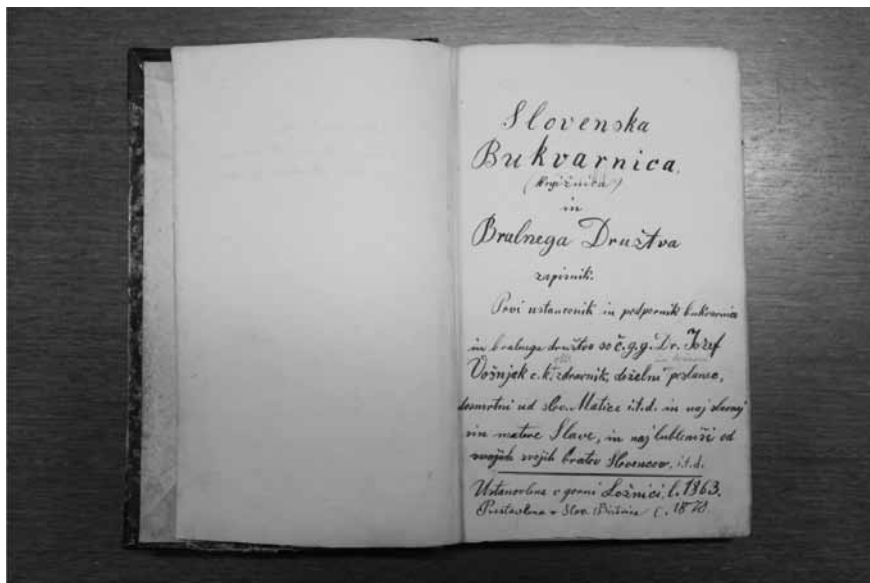 Slovenska
Bukvarnica.
(Knjižnica)
in
Bralnega Družtva
zapisnik.
Prvi ustanovnik in podpornik bukvarnice
in bralnega družtva so č.g.g. Dr. Jožef
Vošnjak c. k. zdravnik, deželni poslanec,
dosmrtni ud slov. Matice i.t.d. in naj slavnej
sin matere Slave, in naj lublenši od
svojih bratov Slovencov, i.t.d.
Ustanovlena v gorni Ložnici, l. 1863.
Prestavlena v Slov. Bistrico l. 1870.